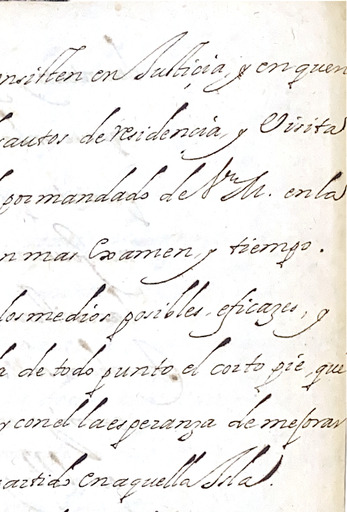 nsisten en Justicia, y en quen
autos de residencia, y Visita
por mandado de V. M. en la
n mas Examen, y tiempo.
los medios posibles, eficazes, y
de todo punto el corto pie, que
y con el la esperanza de mejorar
partido en aquella Isla.